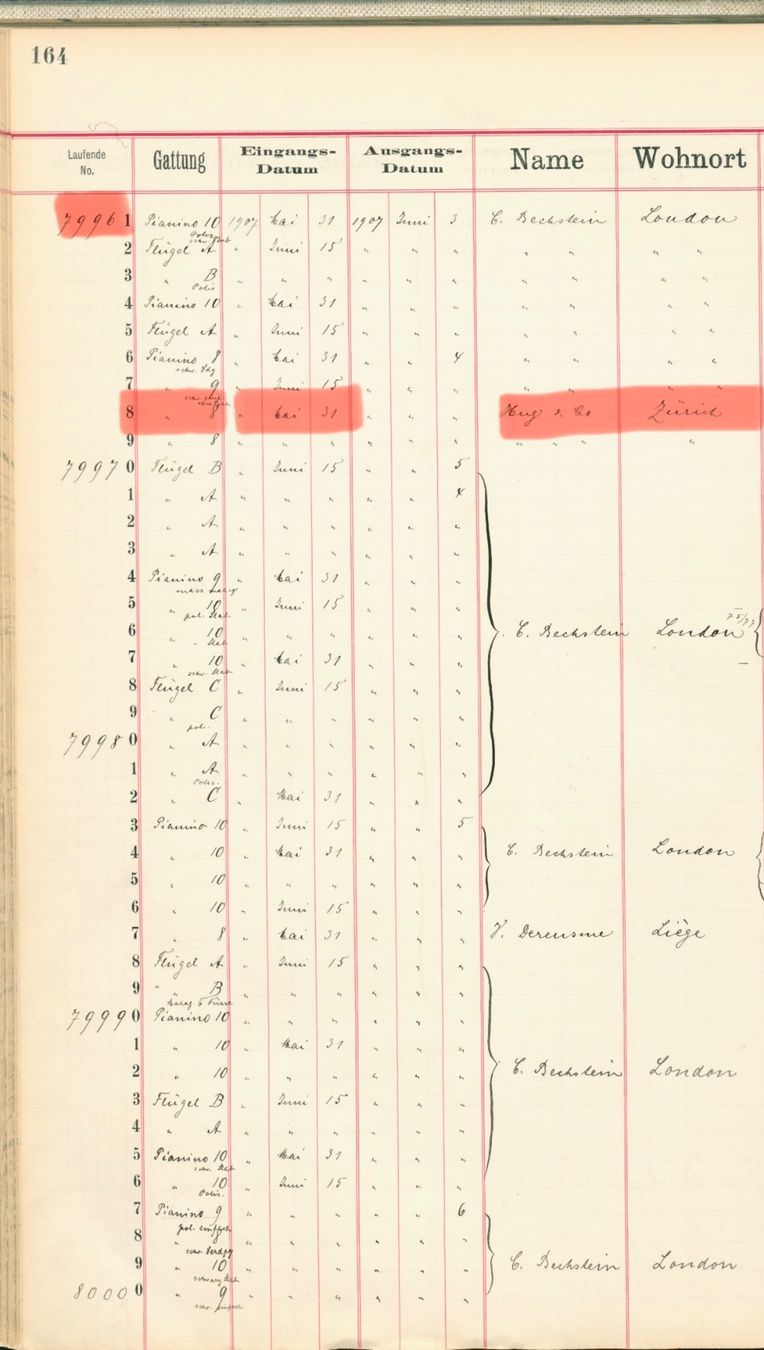 164
Laufende No. Gattung Eingangs-Datum Ausgangs-Datum Name Wohnort
7996 1 Pianino 10 1907 Mai 31 1907 Juni 3 C. Bechstein London
Polis.
2 Flügel A " Juni 15 " " " " " " "
3 " B " " " " " " " " " "
Polis
4 Pianino 10 " Mai 31 " " " " " " "
5 Flügel A " Juni 15 " " " " "
6 Pianino 8 " Mai 31 " " 4 " " " "
schw.
7 " 9 Juni 15 " " " " " "
schw.
8 " 8 " Mai 31 Hug & Co Zürich
9 " 8 " " " " " " " " " "
7997 0 Flügel B " Juni 15 " " 5
1 " A " " " " " 4
2 " A " " " " " "
3 " A " " " " " "
4 Pianino 9 " Mai 31 " " "
5 " 10 " Juni 15 " " "
pol.
6 " 10 " " " " " " C. Bechstein London 75/77
7 " 10 " Mai 31 " " "
schw.
8 Flügel C " Juni 15 " " "
9 " C " " " " " "
pol.
7998 0 " A " " " " " "
1 " A " " " " " "
Polis.
2 " C " Mai 31 " " "
3 Pianino 10 " Juni 15 " " 5
4 " 10 " Mai 31 " " " C. Bechstein London
5 " 10 " " " " " "
6 " 10 " Juni 15 " " "
7 " 8 " Mai 31 " " " V. Derensme Liège
8 Flügel A " Juni 15 " " "
9 " B " " " " " "
7999 0 Pianino 10 " " " " " "
1 " 10 " Mai 31 " " "
2 " 10 " " " " " " C. Bechstein London
3 Flügel B " Juni 15 " " "
4 " A " " " " " "
5 Pianino 10 " Mai 31 " " "
schw.
6 " 10 " Juni 15 " " "
Polis.
7 Pianino 9 " " " " " 6
pol.
8 " 8 " " " " " "
schw.
9 " 10 " " " " " " C. Bechstein London
schwarz
8000 0 " 9 " " " " " "
schw.